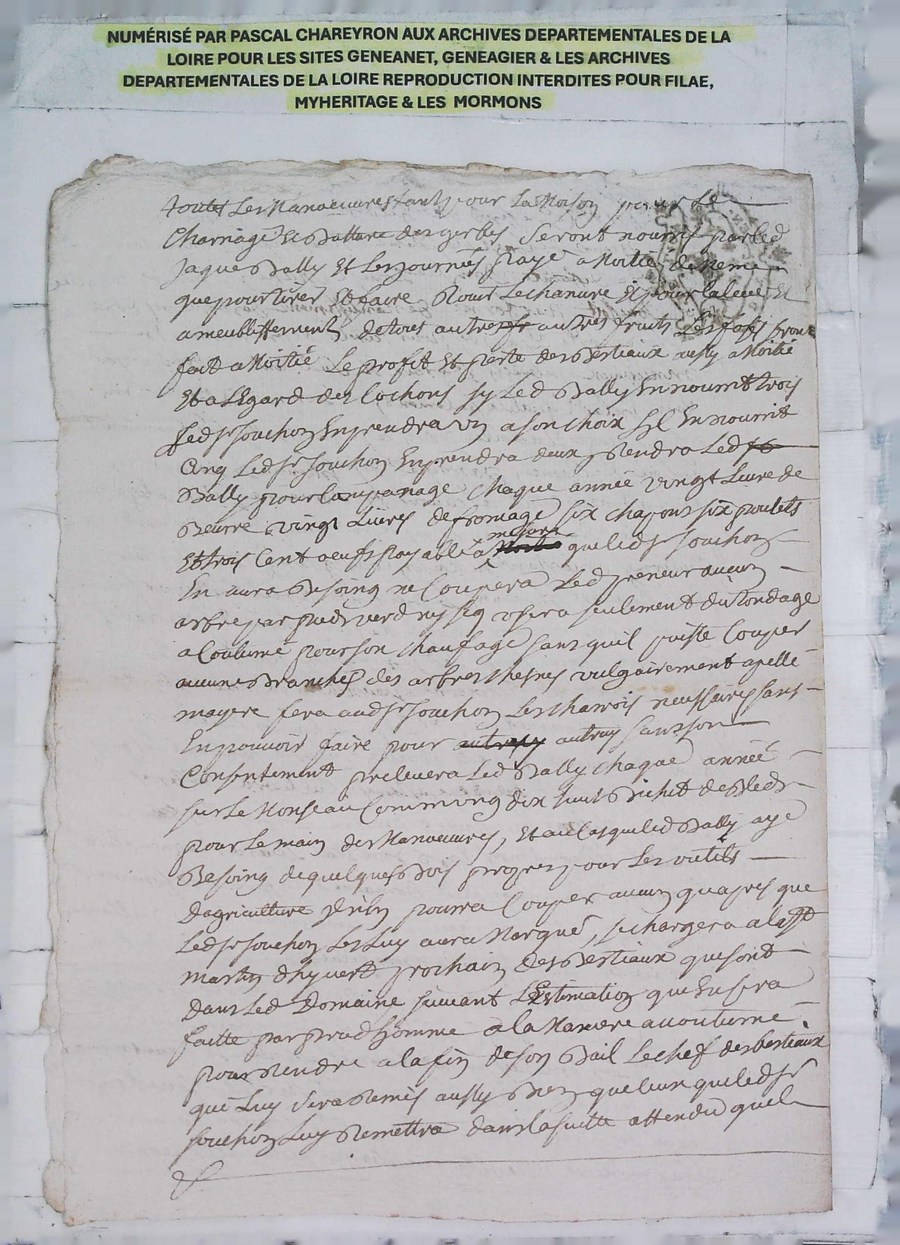 NUMÉRISÉ PAR PASCAL CHAREYRON AUX ARCHIVES DEPARTEMENTALES DE LA
LOIRE POUR LES SITES GENEANET, GENEAGIER & LES ARCHIVES
DEPARTEMENTALES DE LA LOIRE REPRODUCTION INTERDITES POUR FILAE,
MYHERITAGE & LES MORMONS
toutes Les Manoeuvres tant pour La Moison pour Le
Charriage Et Battare des gerbes Seront nourris par led
Jaque Bally Et Les Journés payé a Moitié de Meme
que pour tirer Et faire Le chanvre Et pour la levé Et
ameublissement de tous autres fruits Les
fait a Moitié Le profit Et perte des Bestiaux ausy a Moitié
Et a L'Egard des Cochons sy Led Bally En nourrit trois
Led Sr Souchon En prendra un a son choix syl En nourrit
Cinq Led Sr Souchon En prendra deux, Rendra Led
Bally pour Chaque année vingt Livre de
Beurre vingt Livres de fromage six chapons six poulets
Et trois Cent oeufs payable à mesure que led Sr Souchon
En aura Besoing ne Coupera Led preneur aucun
arbre par pied verd ny seq usera seulement du tondage
a Coutume pour son chauffage sans quil puisse Couper
aucunes Branches des arbres chesnes vulgairement apellé
mayere fera aud Sr Souchon Les charrois nessaires sans
En pouvoir faire pour autruy sans son
Consentement prelevera Led Bally chaque année
sur Le Monseau Commung dix huit Bichet de Bled
pour Le main des Manoeuvres, Et au Cas que led Bally aye
Besoing de quelques Bois propres pour Les outils
dagriculture Il n'en pourra Couper aucun quapres que
Led Sr Souchon Les Luy aura Marqué, se chargera a la St
martin dhyvert prochain des Bestiaux qui sont
dans Led Domaine suivant L'Estimation que En sera
faitte par prud homme a la Maniere accoutumé
pour Rendre a la fin de son Bail Le chef des bestiaux
que Luy sera Remis aussy Bien que Ceux que led Sr
Souchon Luy Remettra dans la suitte attendu quel